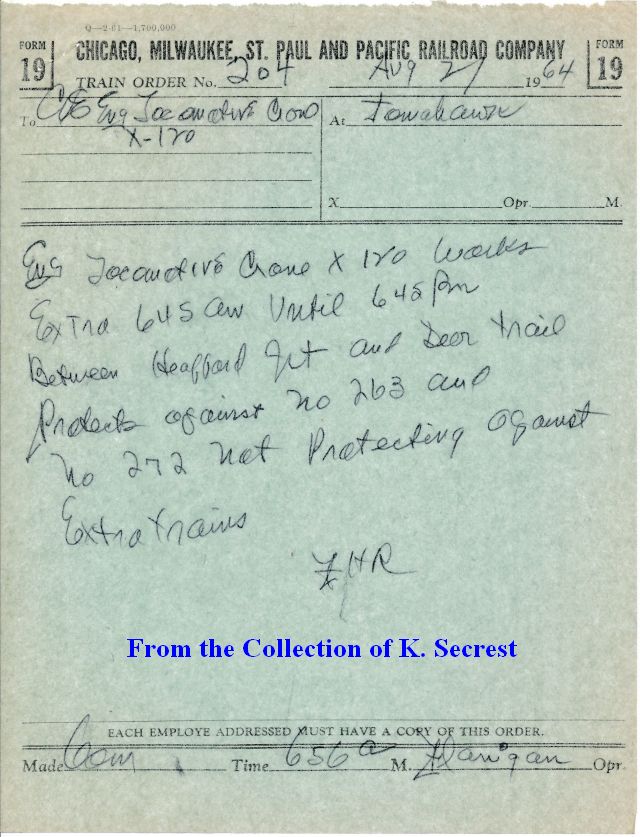 Q—2-61—1,700,000
FORM 19
CHICAGO, MILWAUKEE, ST. PAUL AND PACIFIC RAILROAD COMPANY
FORM 19
TRAIN ORDER No. 204 Aug 27 1964
To C&E Eng Locomotive Crane
X-120
At Tomahawk
X Opr. M.
Eng Locomotive Crane X 120 Works
Extra 645 am Until 645 Pm
Between Heafford Jct and Deer Trail
Protects against No 263 and
No 272 Not Protecting against
Extra trains
FHR
From the Collection of K. Secrest
EACH EMPLOYE ADDRESSED MUST HAVE A COPY OF THIS ORDER.
Made Com Time 656 a M. Flanigan Opr.